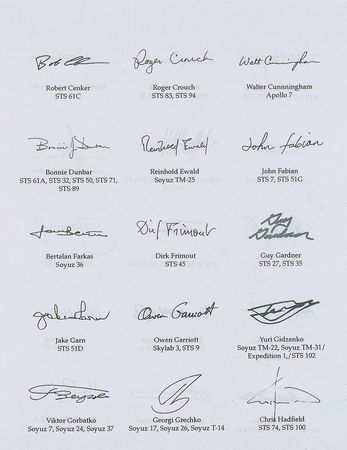 Bob Cenker
Roger Crouch
Walt Cunningham
Robert Cenker
STS 61C
Roger Crouch
STS 83, STS 94
Walter Cunnningham
Apollo 7
Bonnie J. Dunbar
Reinhold Ewald
John Fabian
Bonnie Dunbar
STS 61A, STS 32, STS 50, STS 71,
STS 89
Reinhold Ewald
Soyuz TM-25
John Fabian
STS 7, STS 51G
Dirk Frimout
Guy
Gardner
Bertalan Farkas
Soyuz 36
Dirk Frimout
STS 45
Guy Gardner
STS 27, STS 35
Jake Garn
Owen Garriott
Jake Garn
STS 51D
Owen Garriott
Skylab 3, STS 9
Yuri Gidzenko
Soyuz TM-22, Soyuz TM-31/
Expedition 1,/STS 102
Viktor Gorbatko
Soyuz 7, Soyuz 24, Soyuz 37
Georgi Grechko
Soyuz 17, Soyuz 26, Soyuz T-14
Chris Hadfield
STS 74, STS 100